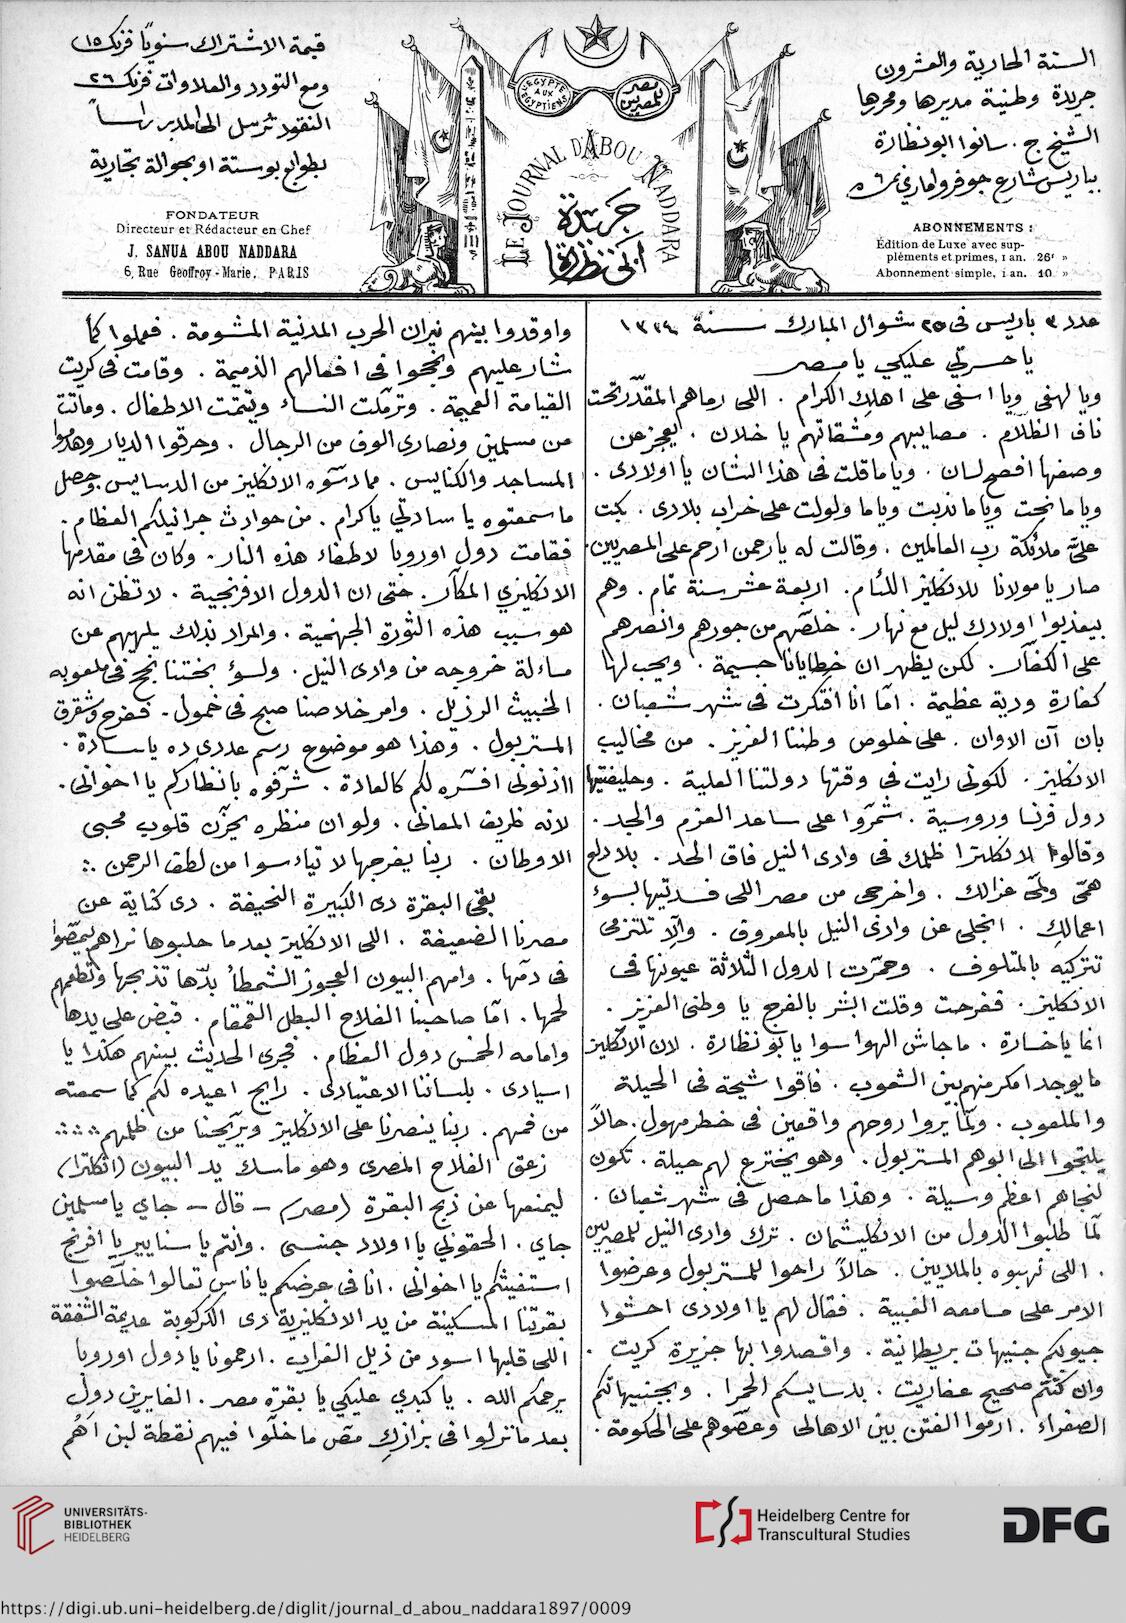 السنة الحادية والعشرون
جريدة وطنية مديرها ومحررها
الشيخ ج. سانوا ابو نظارة
بباريس شارع جوفروا ماري نمرة ٦
ABONNEMENTS :
Édition de Luxe avec sup-
pléments et primes, 1 an. 26f »
Abonnement simple, 1 an. 10 »
EGYPTE
AUX
EGYPTIENS
مصر
للمصريين
LE JOURNAL D'ABOU NADDARA
جريدة
ابى نظارة
قيمة الاشتراك سنويًا فرنك ١٥
ومع التودد والعلاوات فرنك ٢٦
النقود ترسل الى المدير راساً
بطوابع بوستة او بحوالة تجارية
FONDATEUR
Directeur et Rédacteur en Chef
J. SANUA ABOU NADDARA
6, Rue Geoffroy-Marie, PARIS
عدد ٣ باريس فى ٢٥ شوال المبارك سنة ١٣١٤
يا حسرتي عليكي يا مصر
ويا لهفى ويا اسفى على اهلك الكرام . اللى رماهم المقدّر تحت
ناف الظلّام . مصايبهم ومشقاتهم يا خلان . يعجز عن
وصفها افصح لسان . وياما قلت فى هذا الشان يا اولادى .
وياما نحت وياما ندبت وياما ولولت على خراب بلادى . بكت
علىّ ملائكة رب العالمين . وقالت له يا رحمن ارحم على المصريين .
صار يا مولانا للانكليز اللئام . اربعة عشر سنة تمام . وهم
بيعذبوا اولادك ليل مع نهار . خلصّهم من جورهم وانصرهم
على الكفّار . لكن يظهر ان خطايانا جسيمة . ويجب لها
كفارة ودية عظيمة . امّا انا افتكرت فى شهر شعبان .
بان آن الاوان . على خلوص وطننا العزيز . من مخاليب
الانكليز . لكونى رايت فى وقتها دولتنا العلية . وحليفتيها
دول فرنسا وروسية . شمّروا على ساعد العزم والجد .
وقالوا لانكلترا ظلمك فى وادى النيل فاق الحد . بلا دلع
همّى ولمّى عزالك . واخرجى من مصر اللى فسدتيها بسوء
اعمالك . انجلى عن وادى النيل بالمعروف . والّا تلتزمى
تتركيه بالمتلوف . وحمّرت الدول الثلاثة عيونها فى
الانكليز . ففرحت وقلت ابشر بالفرج يا وطنى العزيز .
انما يا خسارة . ما جاش الهوا سوا يا بو نظارة . لان الانكليز
ما يوجد امكر منهم بين الشعوب . فاقوا شيحة فى الحيلة
والملعوب . ولمّا يروا روحهم واقعين فى خطر مهول . حالاً
يلتجوا الى ابوهم المستر بول . وهو يخترع لهم حيلة . تكون
لنجاهم اعظم وسيلة . وهذا ما حصل فى شهر شعبان .
لمّا طلبوا الدول من الانكليشمان . ترك وادى النيل للمصريين
. اللى نهبوه بالملايين . حالاً راحوا للمستر بول وعرضوا
الامر على مسامعه الغبية . فقال لهم يا اولادى احشوا
جيوبكم جنيهات بريطانية . واقصدوا بها جزيرة كريت .
وان كنتم صحيح عفاريت . بدسايسكم الحمرا . وبجنيهاتكم
الصفراء . ارموا الفتن بين الاهالى وعصّوهم على الحكومة .
واوقدوا بينهم نيران الحرب المدنية المشومة . فعملوا كما
شار عليهم ونجحوا فى افعالهم الذميمة . وقامت فى كريت
القيامة العميمة . وترمّلت النساء وتيتمت الاطفال . وماتت
من مسلمين ونصارى الوف من الرجال . وحرقوا الديار وهدموا
المساجد والكنايس . مما دسّوه الانكليز من الدسايس . وحصل
ما سمعتوه يا سادتي يا كرام . من حوادث جرانيلكم العظام .
فقامت دول اوروبا لاطفاء هذه النار . وكان فى مقدمها
الانكليزي المكّار . حتى ان الدول الافرنجية . لا تظن انه
هو سبب هذه الثورة الجهنمية . والمراد بذلك يلهيهم عن
مسائلة خروجه من وادى النيل . ولسؤ بختنا نجح فى ملعوبه
الخبيث الرزيل . وامر خلاصنا صبح فى خمول . ففرح وشقرق
المستر بول . وهذا هو موضوع رسم عددى ده يا سادة .
ااذنونى افسّره لكم كالعادة . شرّفوه بانظاركم يا اخوانى .
لانه ظريف المعانى . ولو ان منظره يحزّن قلوب محبى
الاوطان . ربنا يفرجها لا تياءسوا من لطف الرحمن .
بقى البقرة دى الكبيرة النحيفة . دى كناية عن
مصرنا الضعيفة . اللى الانكليز بعد ما حلبوها نراهم يمصّوا
فى دمّها . وامهم البيون العجوز الشمطأ بدّها تذبحها وتطعمهم
لحمها . امّا صاحبنا الفلاح البطل القمقام . قبض على يدها
وامامه الخمس دول العظام . فجرى الحديث بينهم هكذا يا
اسيادى . بلساننا الاعتيادى . رايح اعيده لكم كما سمعته
من فمهم . ربنا ينصرنا على الانكليز ويريّحنا من ظلمهم
زعق الفلاح المصرى وهو ماسك يد البيون (انكلترا)
ليمنعها عن ذبح البقرة (مصر) – قال – جاي يا مسلمين
جاي . الحقوني يا اولاد جنسى . وانتم يا سنايير يا افرنج
استغيثكم يا اخوانى . انا فى عرضكم يا ناس تعالوا خلّصوا
بقرتنا المسكينة من يد الانكليزية دى الكركوبة عديمة الشفقة
اللى قلبها اسود من ذيل الغراب . ارحمونا يا دول اوروبا
يرحمكم الله . يا كبدي عليكي يا بقرة مصر . الغايرين دول
بعد ما نزلوا فى بزازك مصّ ما خلّوا فيهم نقطة لبن اهُم
UNIVERSITÄTS-
BIBLIOTHEK
HEIDELBERG
Heidelberg Centre for
Transcultural Studies
DFG
https://digi.ub.uni-heidelberg.de/diglit/journal_d_abou_naddara1897/0009